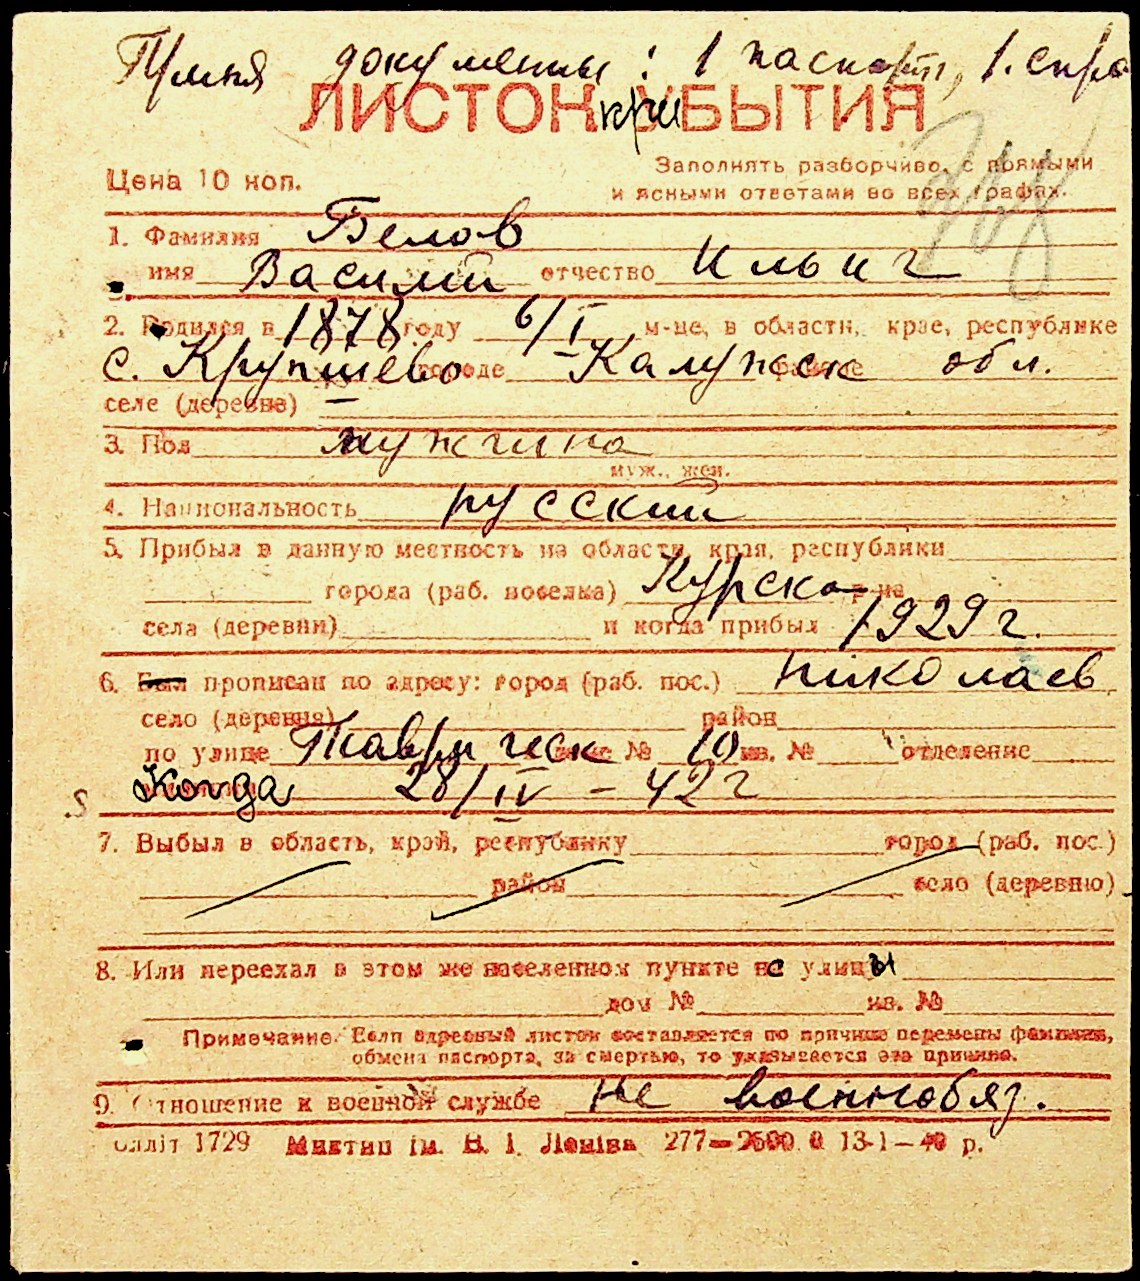 документы: 1 паспорт, 1. спра
ЛИСТОК УБЫТИЯ
Цена 10 коп.
Заполнять разборчиво, с прямыми
и ясными ответами во всех графах.
1. Фамилия Белов
имя Василий отчество Ильич
2. Родился в 1878 году 6/I м-це, в области, крае, республике
с. Крупшево городе Калужск районе обл.
селе (деревне)
3. Пол мужчина
муж., жен.
4. Национальность русский
5. Прибыл в данную местность из области, края, республики
города (раб. поселка) Курска р-на
села (деревни) и когда прибыл 1929 г.
6. Был прописан по адресу: город (раб. пос.) Николаев
село (деревня) район
по улице Таврическ № 10 кв. № отделение
Когда 28/IV – 42 г
7. Выбыл в область, край, республику город (раб. пос.)
район село (деревню)
8. Или переехал в этом же населенном пункте с улицы
дом № кв. №
Примечание. Если адресный листок составляется по причине перемены фамилии,
обмена паспорта, за смертью, то указывается эта причина.
9. Отношение к военной службе не военнобяз.
1729 Миктип ім. В. І. Леніна 277–2500.0 13-1–40 р.